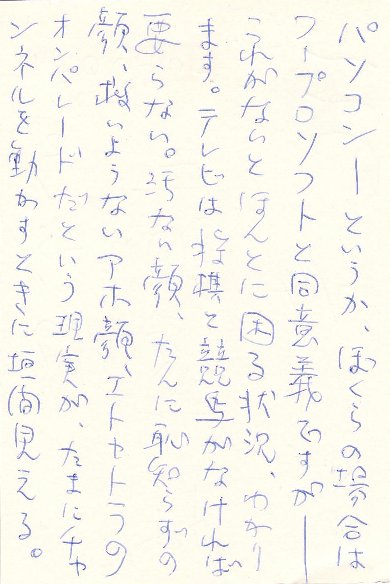 パソコンーというか、ぼくらの場合は
ワープロソフトと同意義ですが――
これがないとほんとに困る状況、わかり
ます。テレビは将棋と競馬がなければ
要らない。汚ない顔、たんに恥知らずの
顔、救いようないアホ顔、エトセトラの
オンパレードだという現実が、たまにチャ
ンネルを動かすときに垣間見える。